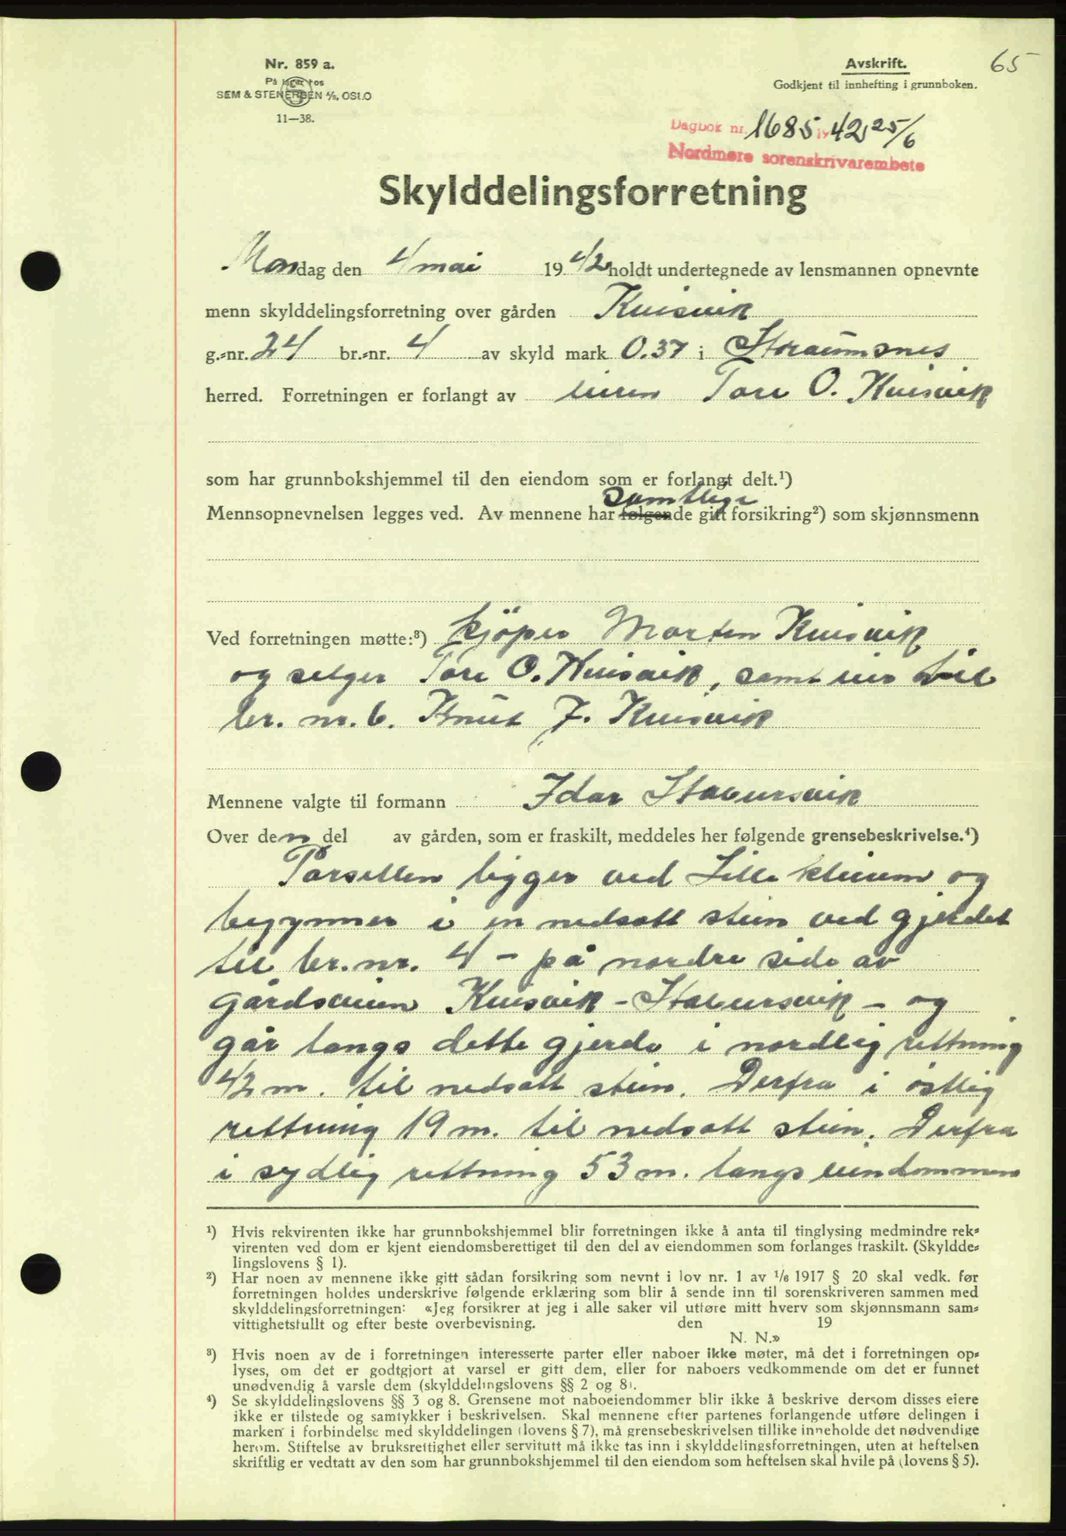 65
Nr. 859 a.
På lager hos
SEM & STENERSEN A/S, OSLO
11—38.
Avskrift.
Godkjent til innhefting i grunnboken.
Dagbok nr. 1685 19 42 25/6
Nordmøre sorenskrivarembete
Skylddelingsforretning
Mondag den 4 mai 19 42 holdt undertegnede av lensmannen opnevnte
menn skylddelingsforretning over gården Kvisvik
g.-nr. 24 br.-nr. 4 av skyld mark 0.37 i Straumsnes
herred. Forretningen er forlangt av eieren Tore O. Kvisvik
som har grunnbokshjemmel til den eiendom som er forlangt delt.¹)
samtlige
Mennsopnevnelsen legges ved. Av mennene har følgende gitt forsikring²) som skjønnsmenn
Ved forretningen møtte:³) kjöper Morten Kvisvik
og selger Tore O. Kvisvik, samt eier til
br. nr. 6. Knut J. Kvisvik
Mennene valgte til formann Idar Stavursvik
Over den del av gården, som er fraskilt, meddeles her følgende grensebeskrivelse.⁴)
Parsellen ligger ved Lille og
begynner i en nedsatt stein ved gjerdet
til br. nr. 4 - på nordre side av
gårdsveien Kvisvik - Stavursvik - og
går langs dette gjerde i nordlig rettning
42 m. til nedsatt stein. Derfra i östlig
rettning 19 m. til nedsatt stein. Derfra
i sydlig rettning 53 m. langs eiendommen
¹) Hvis rekvirenten ikke har grunnbokshjemmel blir forretningen ikke å anta til tinglysing medmindre rek-
virenten ved dom er kjent eiendomsberettiget til den del av eiendommen som forlanges fraskilt. (Skyldde-
lingslovens § 1).
²) Har noen av mennene ikke gitt sådan forsikring som nevnt i lov nr. 1 av 1/6 1917 § 20 skal vedk. før
forretningen holdes underskrive følgende erklæring som blir å sende inn til sorenskriveren sammen med
skylddelingsforretningen: «Jeg forsikrer at jeg i alle saker vil utføre mitt hverv som skjønnsmann sam-
vittighetsfullt og efter beste overbevisning. den 19
N. N.»
³) Hvis noen av de i forretningen interesserte parter eller naboer ikke møter, må det i forretningen op-
lyses, om det er godtgjort at varsel er gitt dem, eller for naboers vedkommende om det er funnet
unødvendig å varsle dem (skylddelingslovens §§ 2 og 8).
⁴) Se skylddelingslovens §§ 3 og 8. Grensene mot naboeiendommer blir ikke å beskrive dersom disses eiere
ikke er tilstede og samtykker i beskrivelsen. Skal mennene efter partenes forlangende utføre delingen i
marken i forbindelse med skylddelingen (lovens § 7), må grensebeskrivelsen tillike inneholde det nødvendige
herom. Stiftelse av bruksrettighet eller servitutt må ikke tas inn i skylddelingsforretningen, uten at heftelsen
skriftlig er vedtatt av den som har grunnbokshjemmel til den eiendom som heftelsen skal hvile på (lovens § 5).